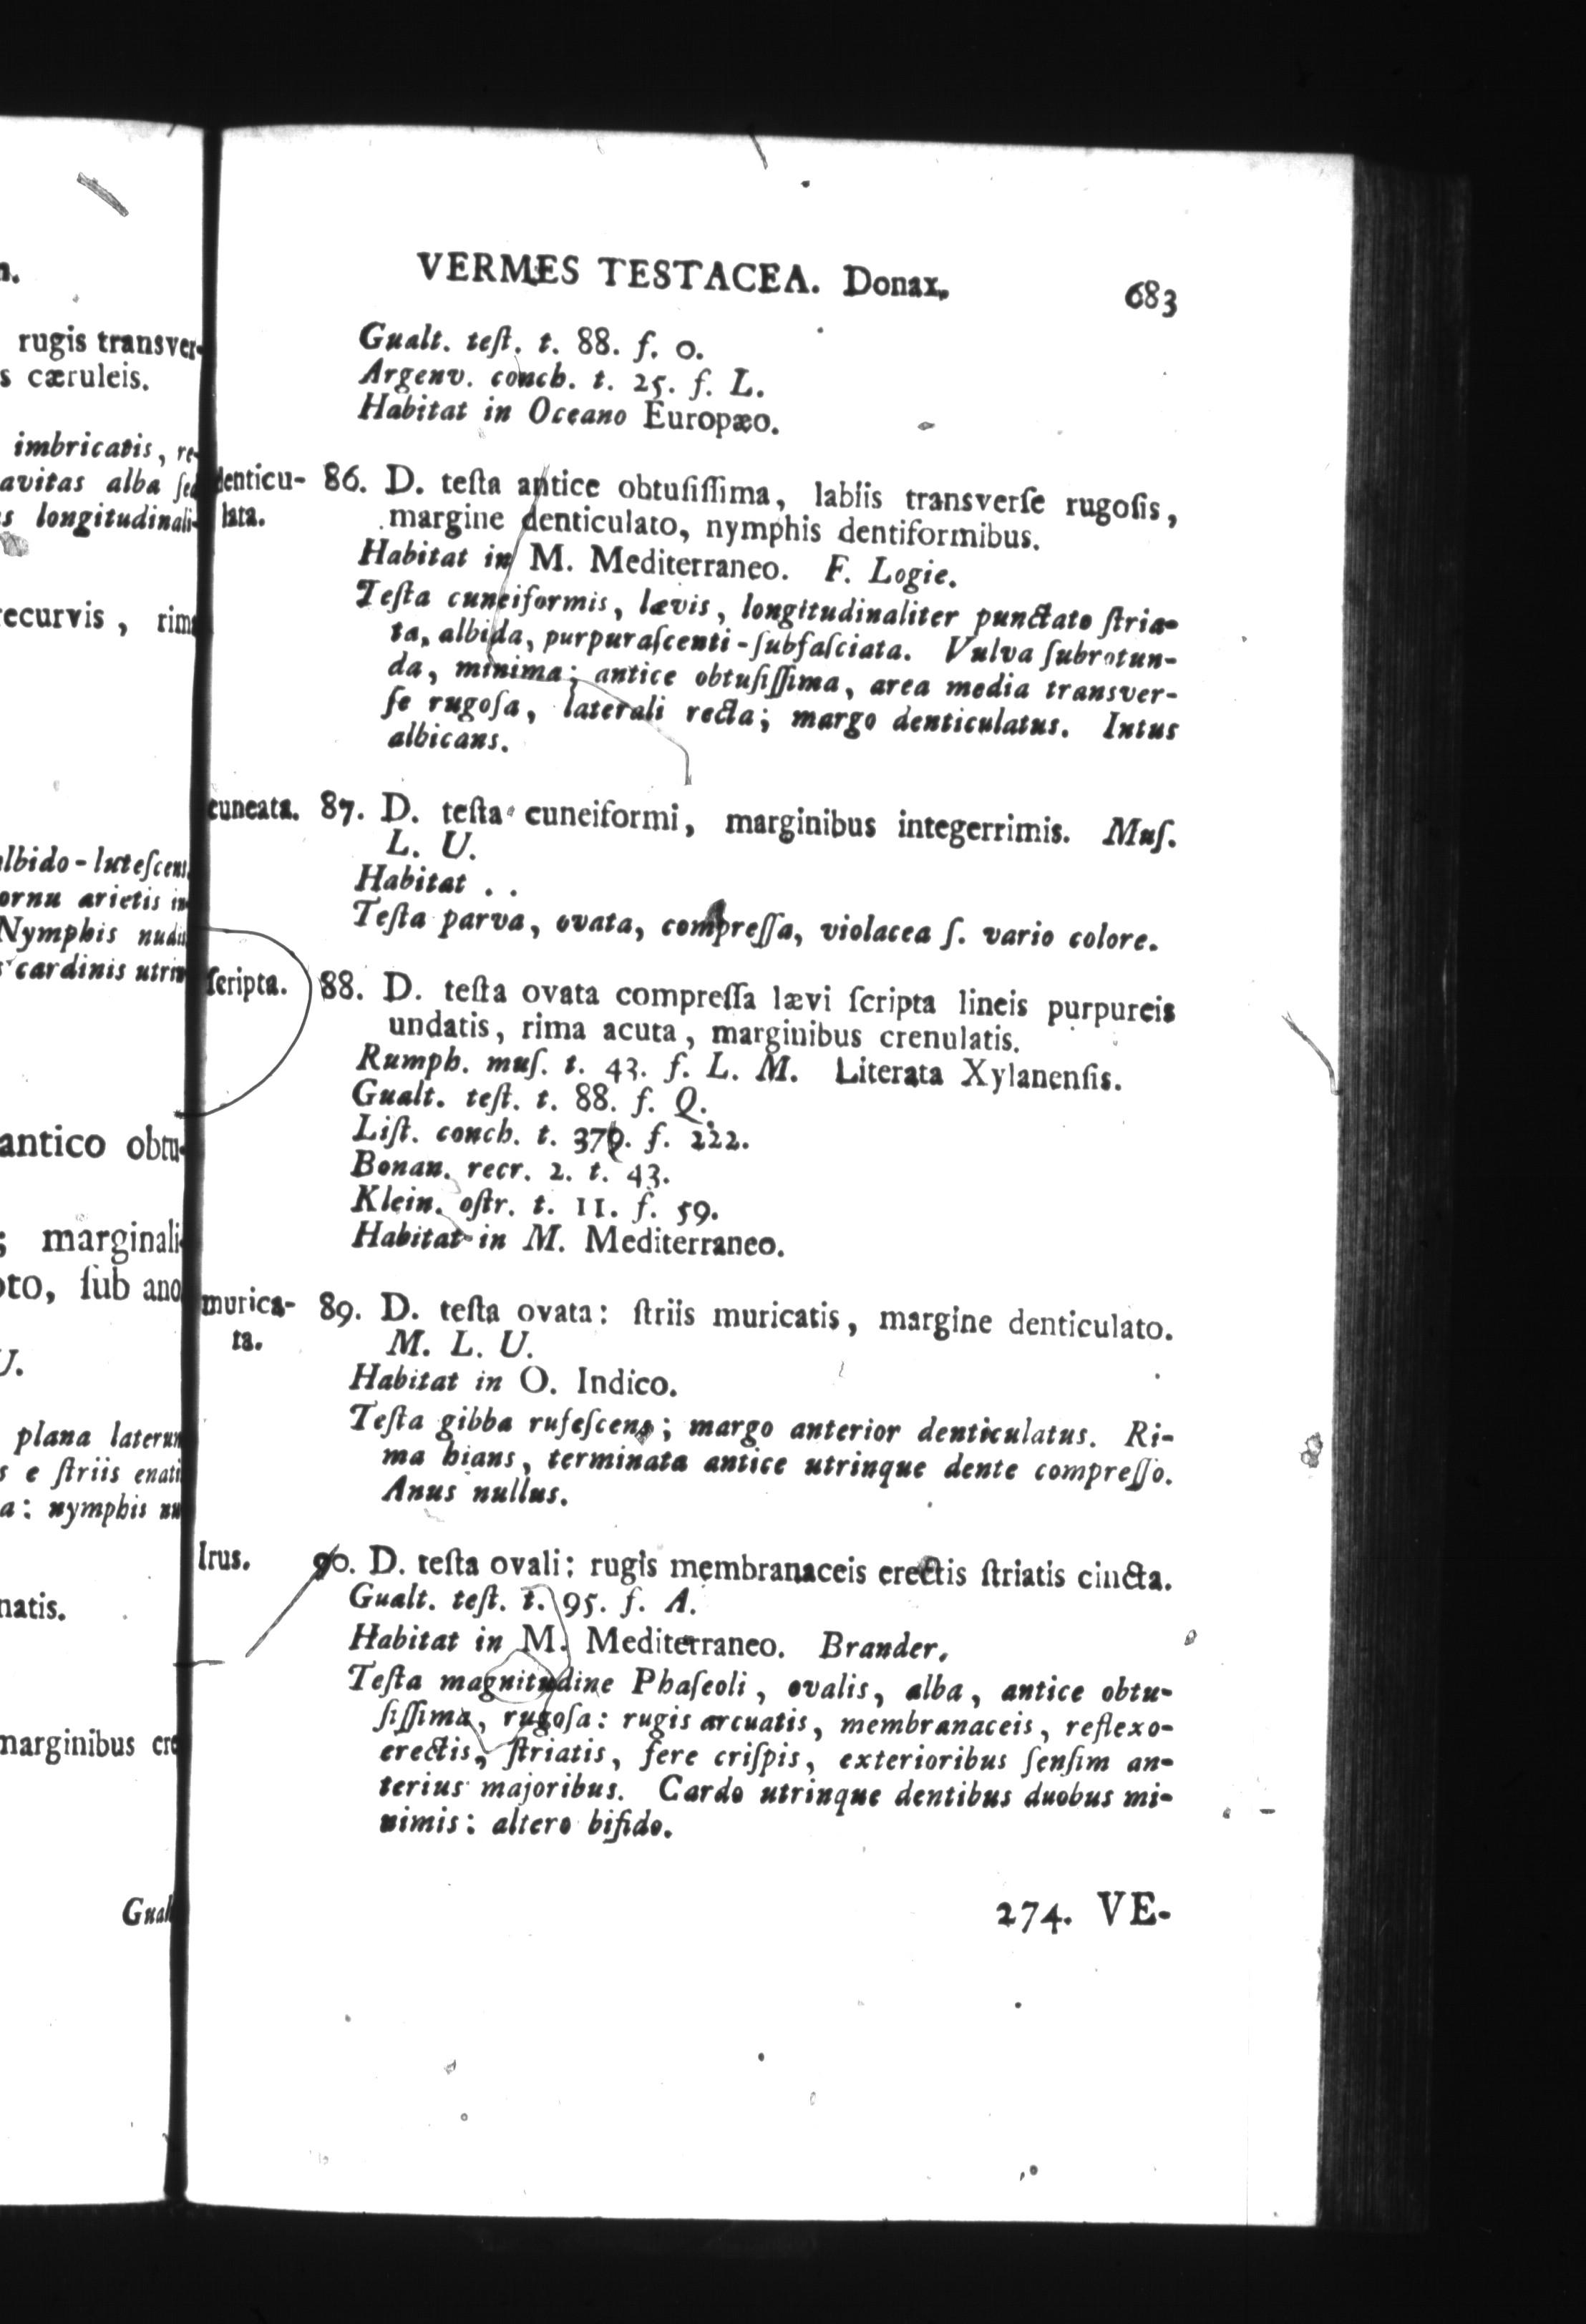 n.
rugis transver-
s cæruleis.
imbricatis, re-
avitas alba ſed
s longitudinali-
recurvis, rima
albido-luteſcens
ornu arietis in
Nymphis nudis
cardinis utrin
antico obtu-
; marginali-
oto, ſub ano
U.
plana laterum
s e ſtriis enati
a: nymphis nu
natis.
marginibus cre
Gual
VERMES TESTACEA. Donax. 683
Gualt. teſt. t. 88. f. o.
Argenv. conch. t. 25. f. L.
Habitat in Oceano Europæo.
denticu- 86. D. teſta antice obtuſiſſima, labiis transverſe rugoſis,
lata. margine denticulato, nymphis dentiformibus.
Habitat in M. Mediterraneo. F. Logie.
Teſta cuneiformis, lævis, longitudinaliter punctato ſtria-
ta, albida, purpuraſcenti-ſubfaſciata. Vulva ſubrotun-
da, minima; antice obtuſiſſima, area media transver-
ſe rugoſa, laterali recta; margo denticulatus. Intus
albicans.
cuneata. 87. D. teſta cuneiformi, marginibus integerrimis. Muſ.
L. U.
Habitat . .
Teſta parva, ovata, compreſſa, violacea ſ. vario colore.
ſcripta. 88. D. teſta ovata compreſſa lævi ſcripta lineis purpureis
undatis, rima acuta, marginibus crenulatis.
Rumph. muſ. t. 43. f. L. M. Literata Xylanenſis.
Gualt. teſt. t. 88. f. Q.
Liſt. conch. t. 379. f. 222.
Bonan. recr. 2. t. 43.
Klein. oſtr. t. 11. f. 59.
Habitat in M. Mediterraneo.
murica- 89. D. teſta ovata: ſtriis muricatis, margine denticulato.
ta. M. L. U.
Habitat in O. Indico.
Teſta gibba rufeſcens; margo anterior denticulatus. Ri-
ma hians, terminata antice utrinque dente compreſſo.
Anus nullus.
Irus. 90. D. teſta ovali: rugis membranaceis erectis ſtriatis cincta.
Gualt. teſt. t. 95. f. A.
Habitat in M. Mediterraneo. Brander.
Teſta magnitudine Phaſeoli, ovalis, alba, antice obtu-
ſiſſima, rugoſa: rugis arcuatis, membranaceis, reflexo-
erectis, ſtriatis, fere criſpis, exterioribus ſenſim an-
terius majoribus. Cardo utrinque dentibus duobus mi-
nimis: altero bifido.
274. VE-